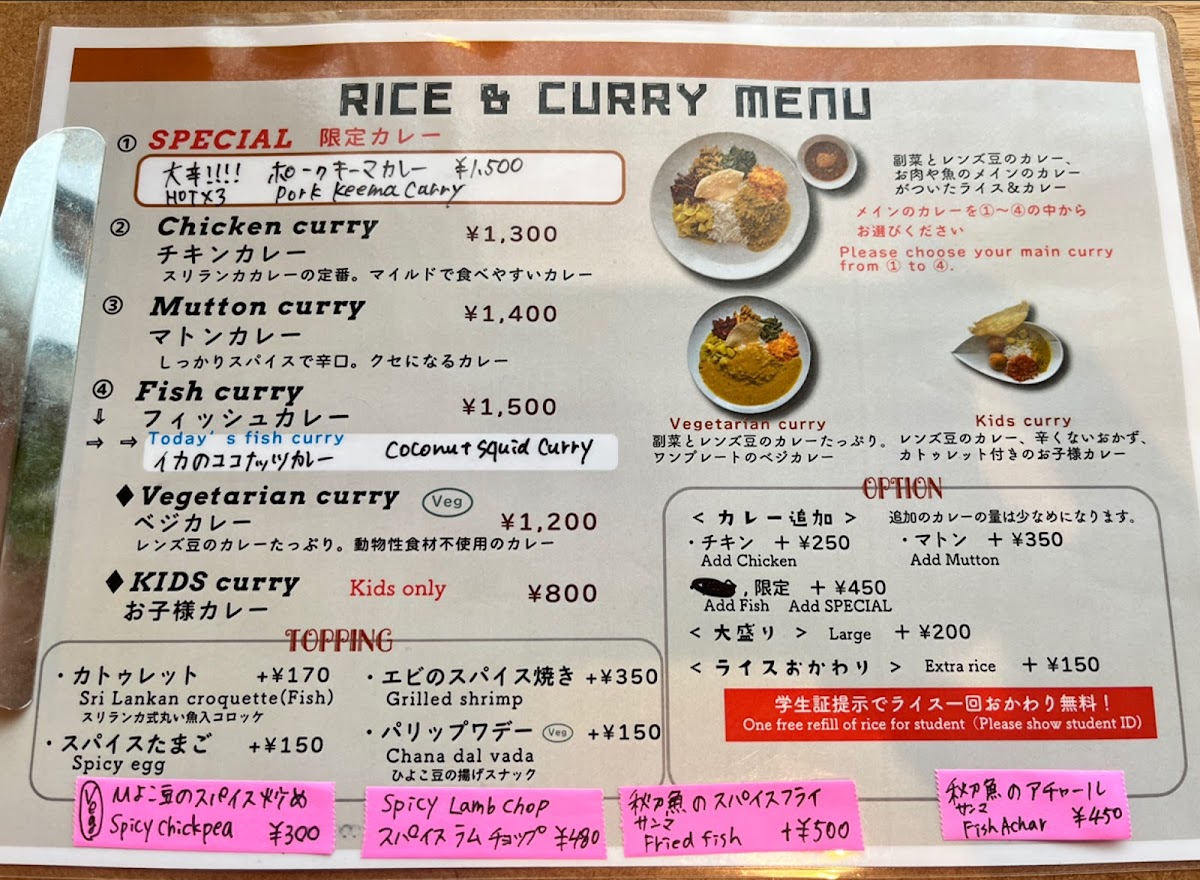 RICE & CURRY MENU
① SPECIAL 限定カレー
大辛!!!! ポークキーマカレー ¥1,500
HOT×3 Pork Keema Curry
② Chicken curry ¥1,300
チキンカレー
スリランカカレーの定番。マイルドで食べやすいカレー
③ Mutton curry ¥1,400
マトンカレー
しっかりスパイスで辛口。クセになるカレー
④ Fish curry ¥1,500
⇩ フィッシュカレー
⇨ ⇨ Today's fish curry
イカのココナッツカレー Coconut Squid Curry
♦Vegetarian curry Veg ¥1,200
ベジカレー
レンズ豆のカレーたっぷり。動物性食材不使用のカレー
♦KIDS curry Kids only ¥800
お子様カレー
副菜とレンズ豆のカレー、
お肉や魚のメインのカレー
がついたライス&カレー
メインのカレーを①〜④の中から
お選びください
Please choose your main curry
from ① to ④.
Vegetarian curry
副菜とレンズ豆のカレーたっぷり。
ワンプレートのベジカレー
Kids curry
レンズ豆のカレー、辛くないおかず、
カトゥレット付きのお子様カレー
TOPPING
・カトゥレット +¥170
Sri Lankan croquette(Fish)
スリランカ式丸い魚入コロッケ
・スパイスたまご +¥150
Spicy egg
・エビのスパイス焼き +¥350
Grilled shrimp
・パリップワデー Veg +¥150
Chana dal vada
ひよこ豆の揚げスナック
OPTION
< カレー追加 > 追加のカレーの量は少なめになります。
・チキン + ¥250 ・マトン + ¥350
Add Chicken Add Mutton
, 限定 + ¥450
Add Fish Add SPECIAL
< 大盛り > Large + ¥200
< ライスおかわり > Extra rice + ¥150
学生証提示でライス一回おかわり無料！
One free refill of rice for student (Please show student ID)
Veg ひよこ豆のスパイス炒め
Spicy Chickpea ¥300
Spicy Lamb Chop
スパイス ラム チョップ ¥480
秋刀魚のスパイスフライ
サンマ
Fried fish +¥500
秋刀魚のアチャール
サンマ
Fish Achar ¥450